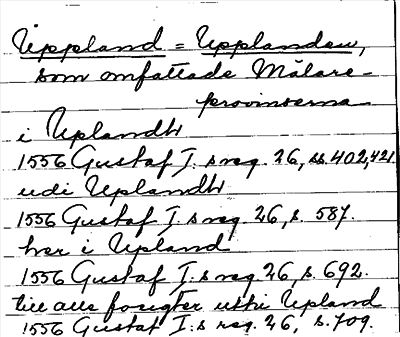 Uppland = Upplanden,
som omfattade Mälare-
provinserna
i Uplandh
1556 Gustaf I:s reg. 26, ss. 402, 421
udi Uplandh
1556 Gustaf I:s reg. 26, s. 587.
her i Upland
1556 Gustaf I:s reg. 26, s. 692.
till alle fougter uthi Upland
1556 Gustaf I:s reg. 26, s. 709.